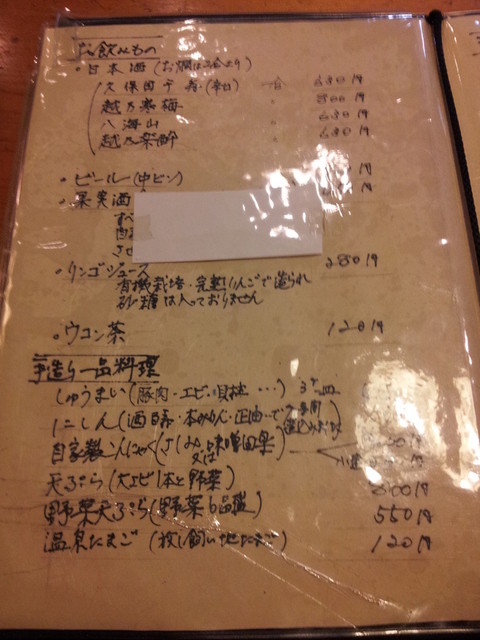 お飲みもの
・日本酒(お燗は二合より)
久保田千寿(辛口) 一合 680円
越乃寒梅 〃 800円
八海山 〃 680円
越乃 〃 680円
・ビール(中ビン) 円
・果実酒
・リンゴジュース 280円
有機栽培・完熟りんごで造られ
砂糖は入っておりません
・ウコン茶 120円
手造り一品料理
しゅうまい(豚肉・エビ・貝柱…) 3ヶ皿
にしん(酒・本みりん・正油で
自家製こんにゃく(さしみ又は味噌田楽)
天ぷら(大エビ1本と野菜) 800円
野菜天ぷら(野菜6品盛) 550円
温泉たまご(放し飼い地たまご) 120円